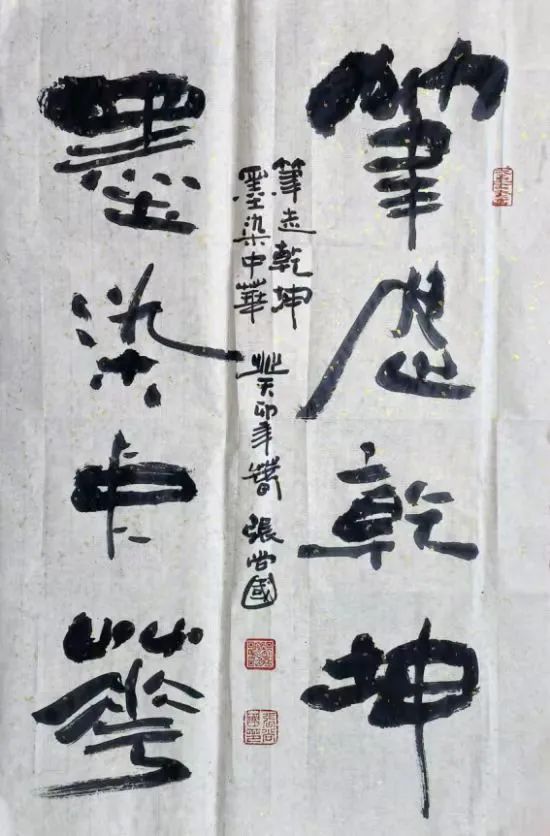 筆走乾坤
筆走乾坤
墨染中華 癸卯年春 張尚國
墨染中華